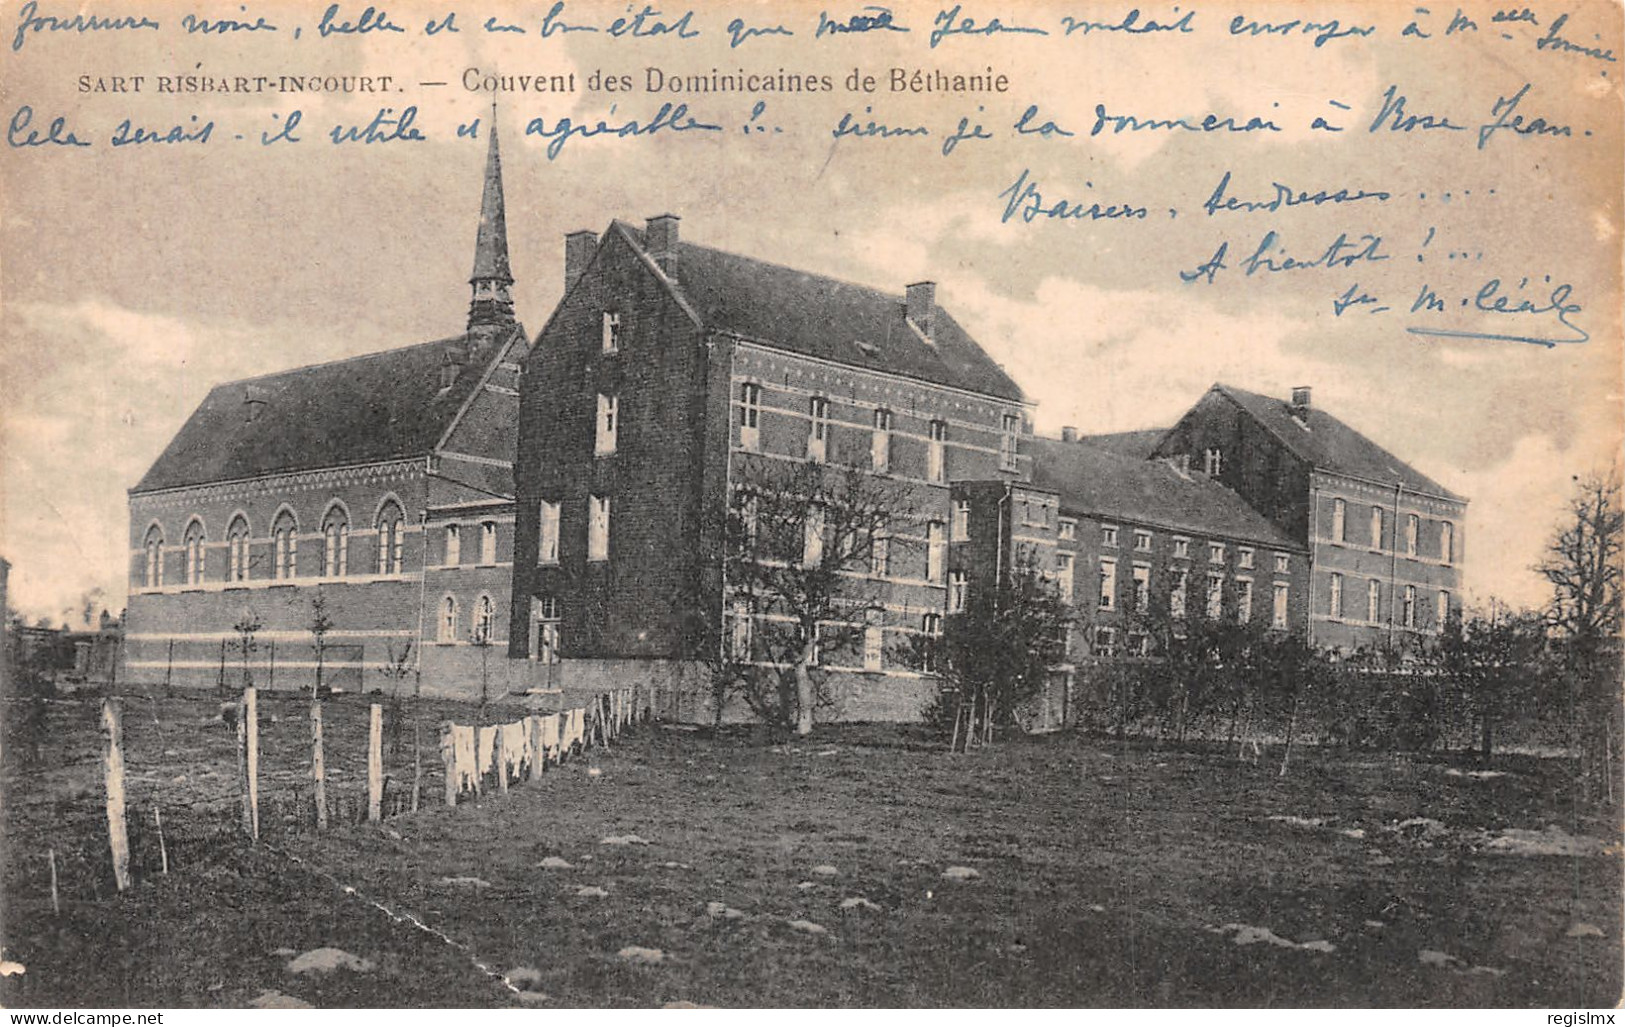 fourrure noire, belle et en bon état que Jean voulait envoyer à Melle Louise.
SART RISBART-INCOURT. — Couvent des Dominicaines de Béthanie
Cela serait-il utile et agréable !.. sinon je la donnerai à Rose Jean.
Baisers, tendresses ....
A bientôt !...
Sr M. Cécile
www.delcampe.net
regislmx